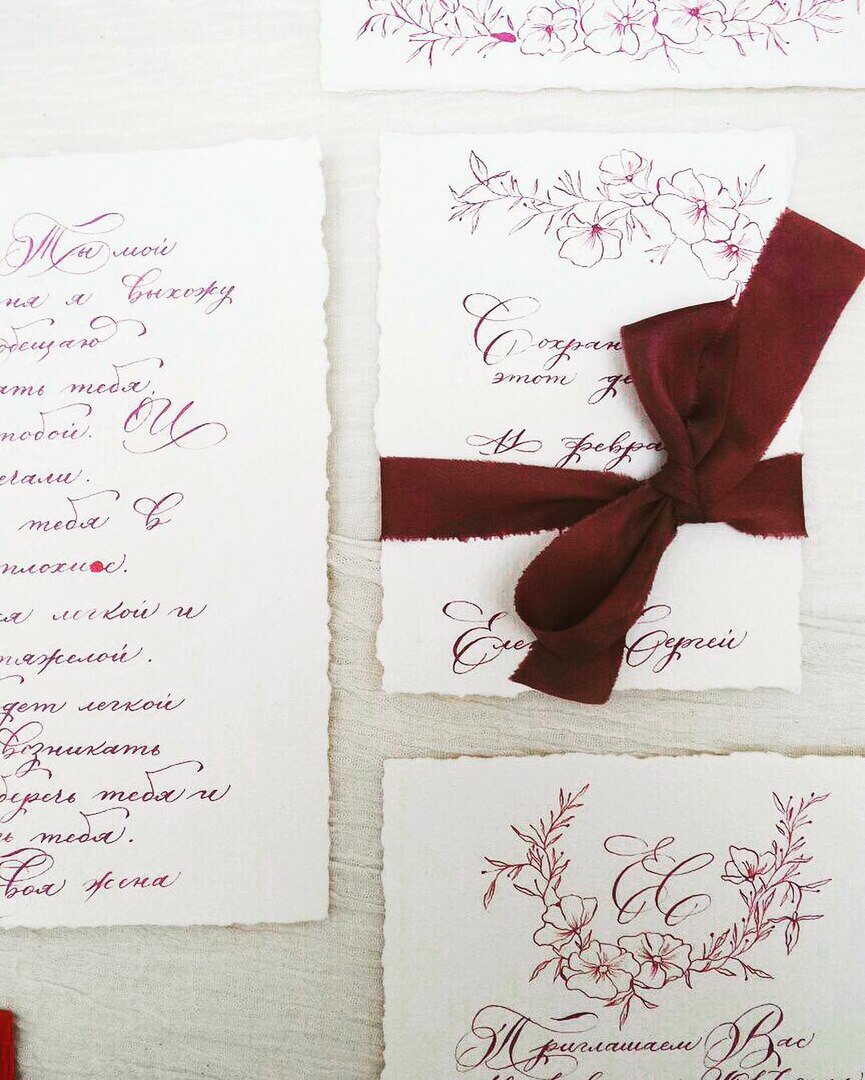 Ты мой
ня я выхожу
обещаю
ать тебя.
тобой. И
ечали.
тебя в
плохие.
ся легкой и
тяжелой.
дет легкой
возникать
беречь тебя и
ь тебя.
воя жена
Сохран
этот де
11 февра
Еле Сергей
ЕС
Приглашаем Вас